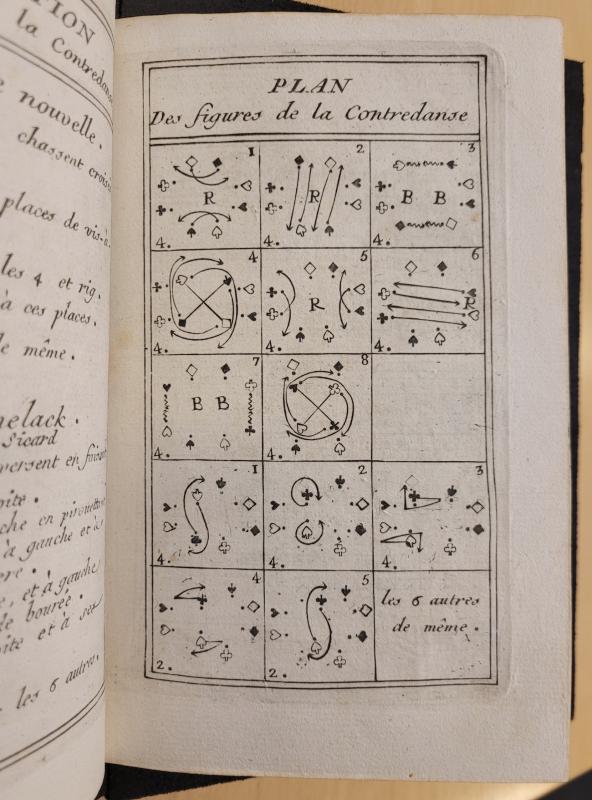 TION
la Contredanse
nouvelle.
chassent croisé
places de vis-à
les 4 et rig.
à ces places.
de même.
nelack.
Sicard
versent en
oite.
che en
à gauche et à
ere.
, et à gauche
de bourée.
oite et à ses
les 6 autres.
PLAN
Des figures de la Contredanse
1 2 3
R R B B
4. 4. 4.
4 5 6
R R
4. 4. 4.
7 8
B B
4. 4.
1 2 3
4. 4. 4.
4 5
les 6 autres
de même.
2. 2.